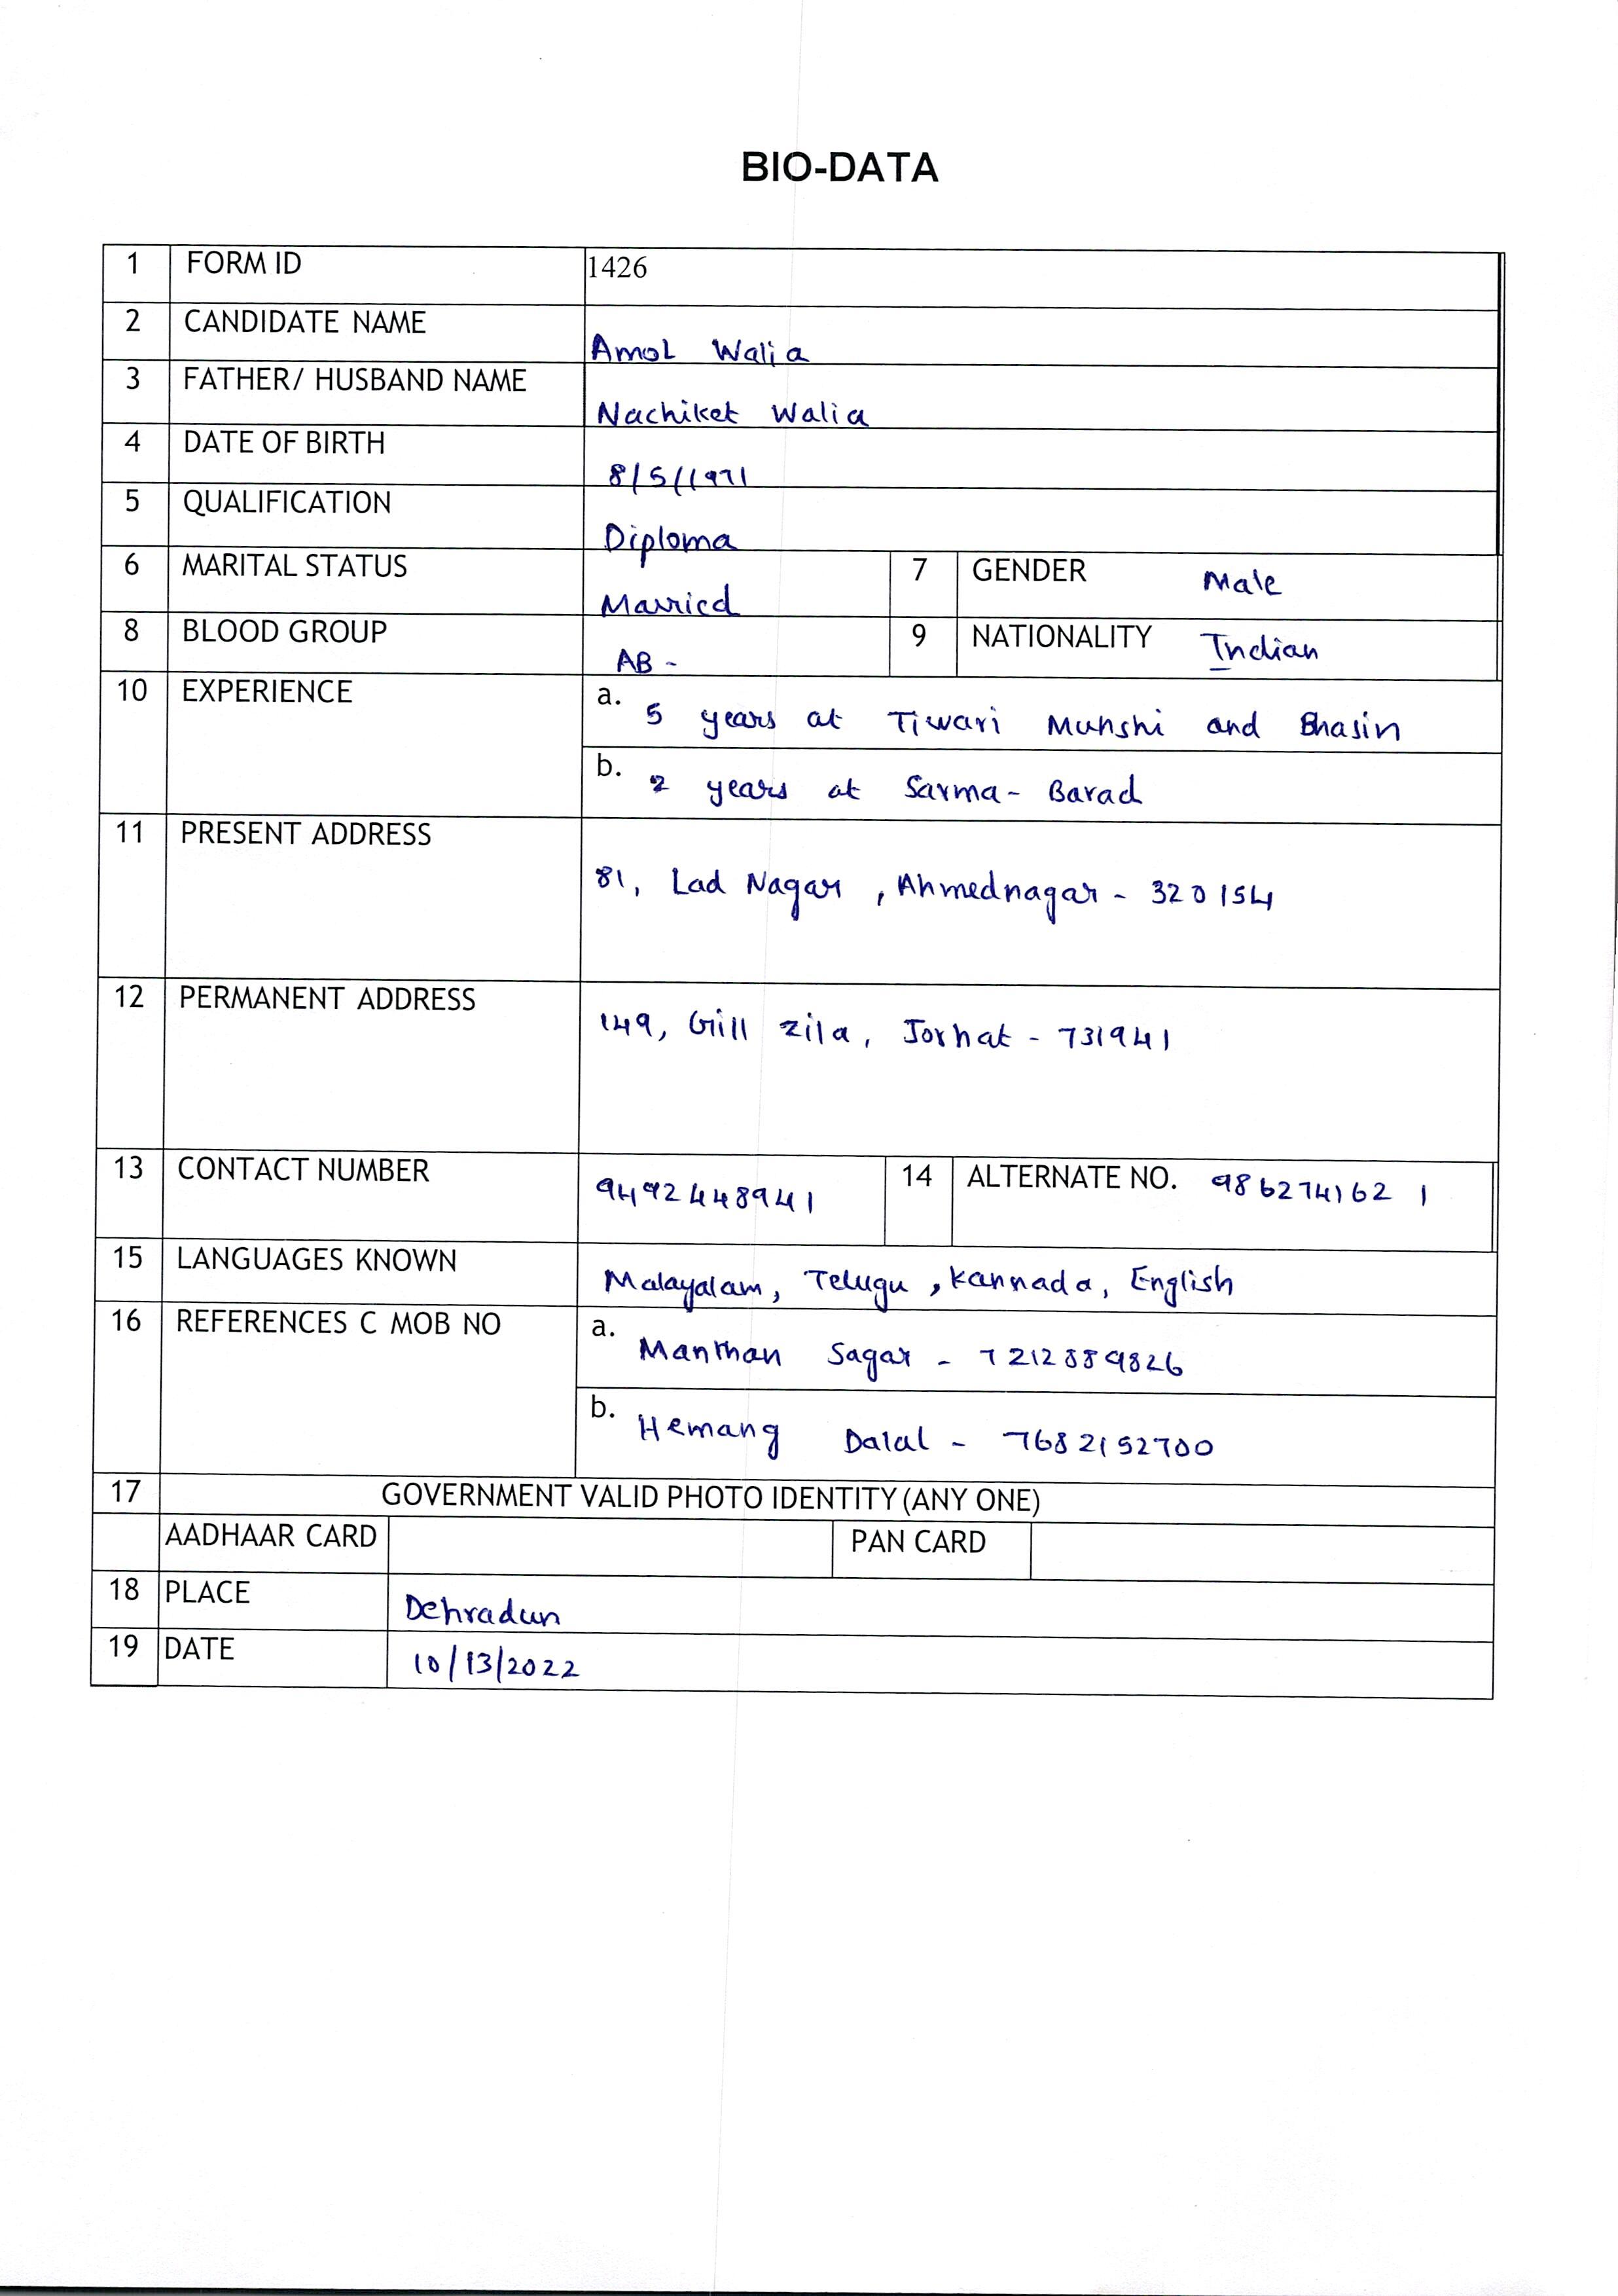 BIO-DATA
1 FORM ID 1426
2 CANDIDATE NAME Amol Walia
3 FATHER/ HUSBAND NAME Nachiket Walia
4 DATE OF BIRTH 8/5/1971
5 QUALIFICATION Diploma
6 MARITAL STATUS Married 7 GENDER Male
8 BLOOD GROUP AB - 9 NATIONALITY Indian
10 EXPERIENCE a. 5 years at Tiwari Munshi and Bhasin
b. 2 years at Sarma- Barad
11 PRESENT ADDRESS 81, Lad Nagar , Ahmednagar - 320154
12 PERMANENT ADDRESS 149, Gill Zila, Jorhat - 731941
13 CONTACT NUMBER 9492448941 14 ALTERNATE NO. 9862741621
15 LANGUAGES KNOWN Malayalam, Telugu , Kannada, English
16 REFERENCES C MOB NO a. Manthan Sagar - 7212889826
b. Hemang Dalal - 7682152700
17 GOVERNMENT VALID PHOTO IDENTITY (ANY ONE)
AADHAAR CARD PAN CARD
18 PLACE Dehradun
19 DATE 10/13/2022